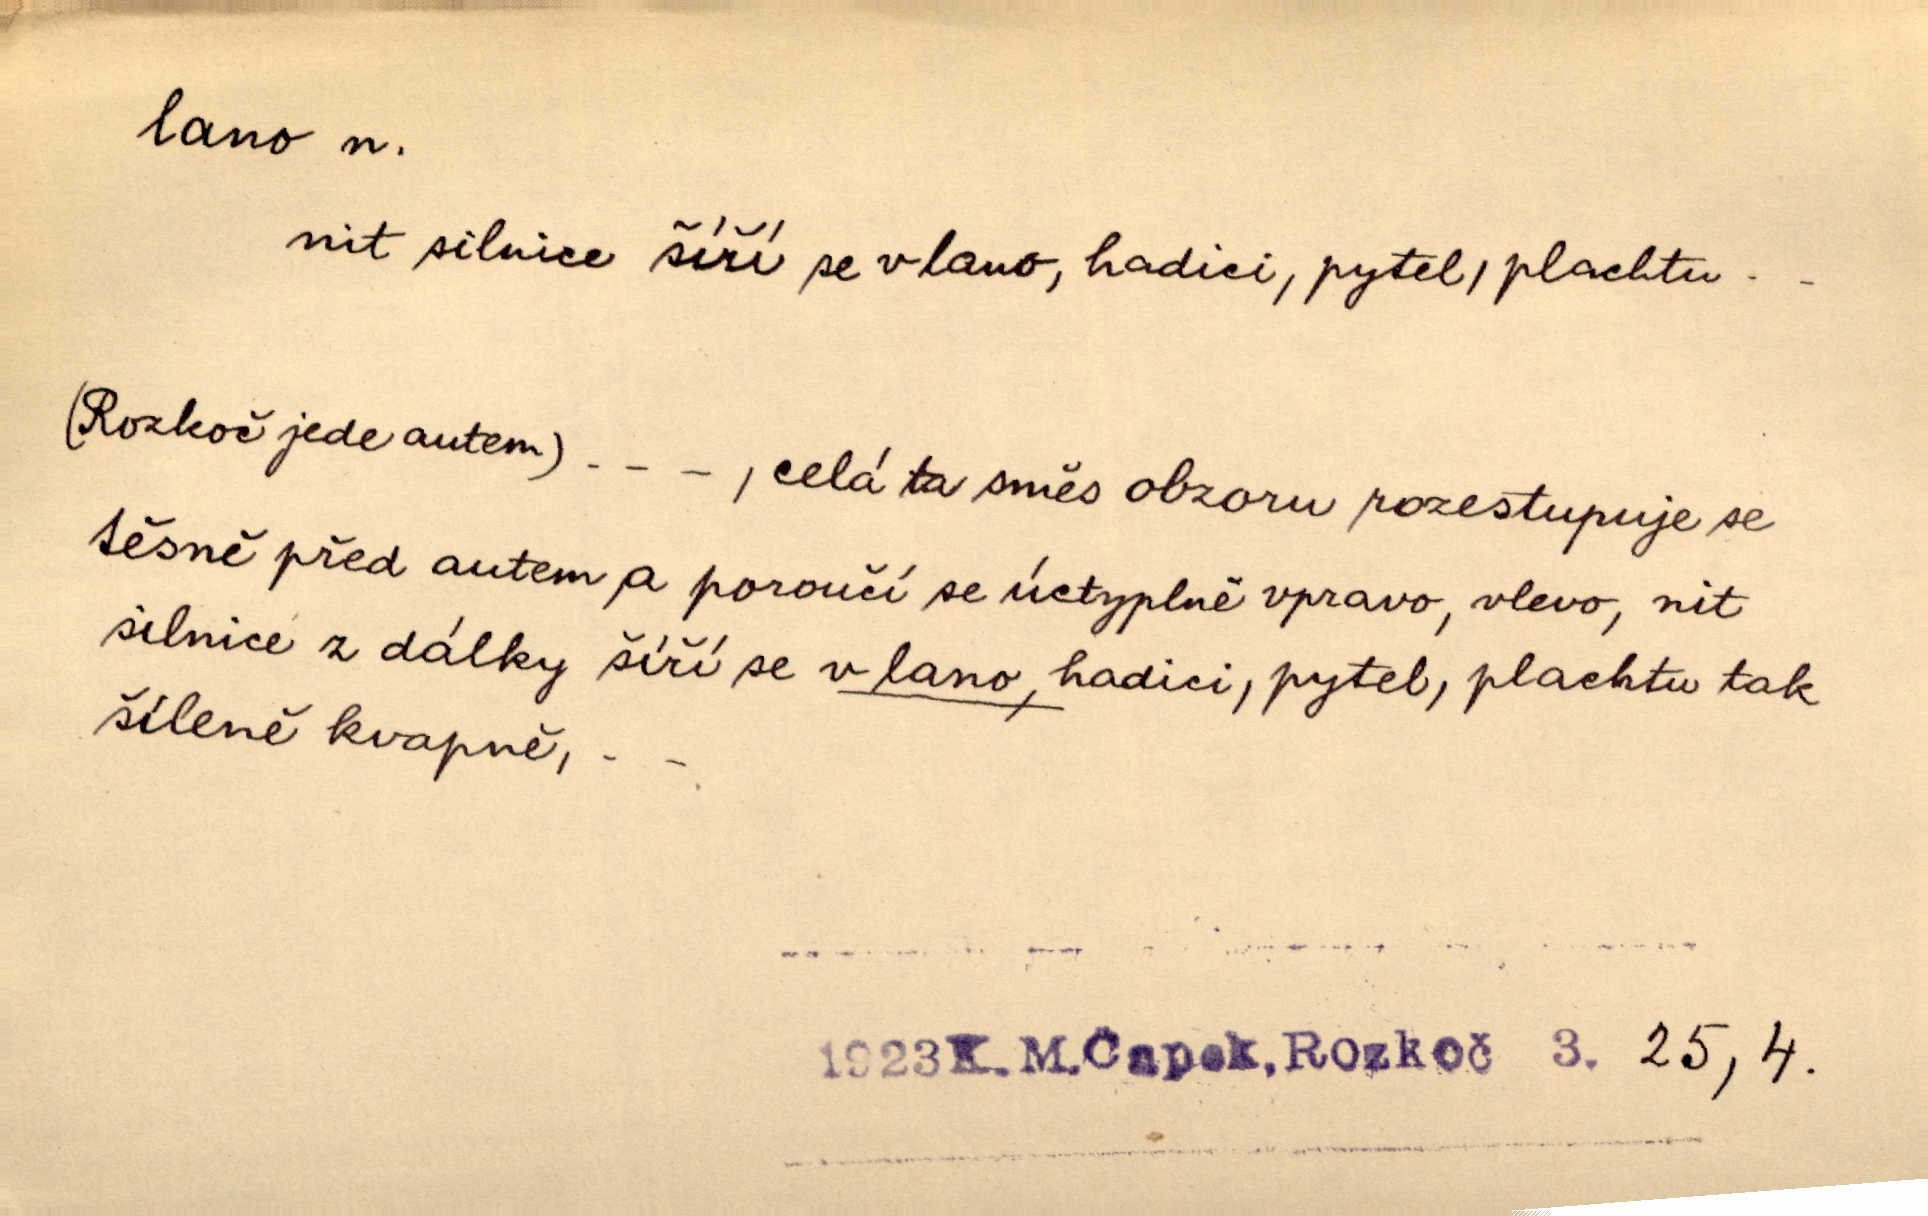 lano n.
nit silnice šíří se v lano, hadici, pytel, plachtu - -
(Rozkoč jede autem) - - - , celá ta směs obzoru rozestupuje se
těsně před autem a poroučí se úctyplně vpravo, vlevo, nit
silnice z dálky šíří se v lano, hadici, pytel, plachtu tak
šíleně kvapně, - -
1923 K. M. Čapek, Rozkoč 3. 25, 4.